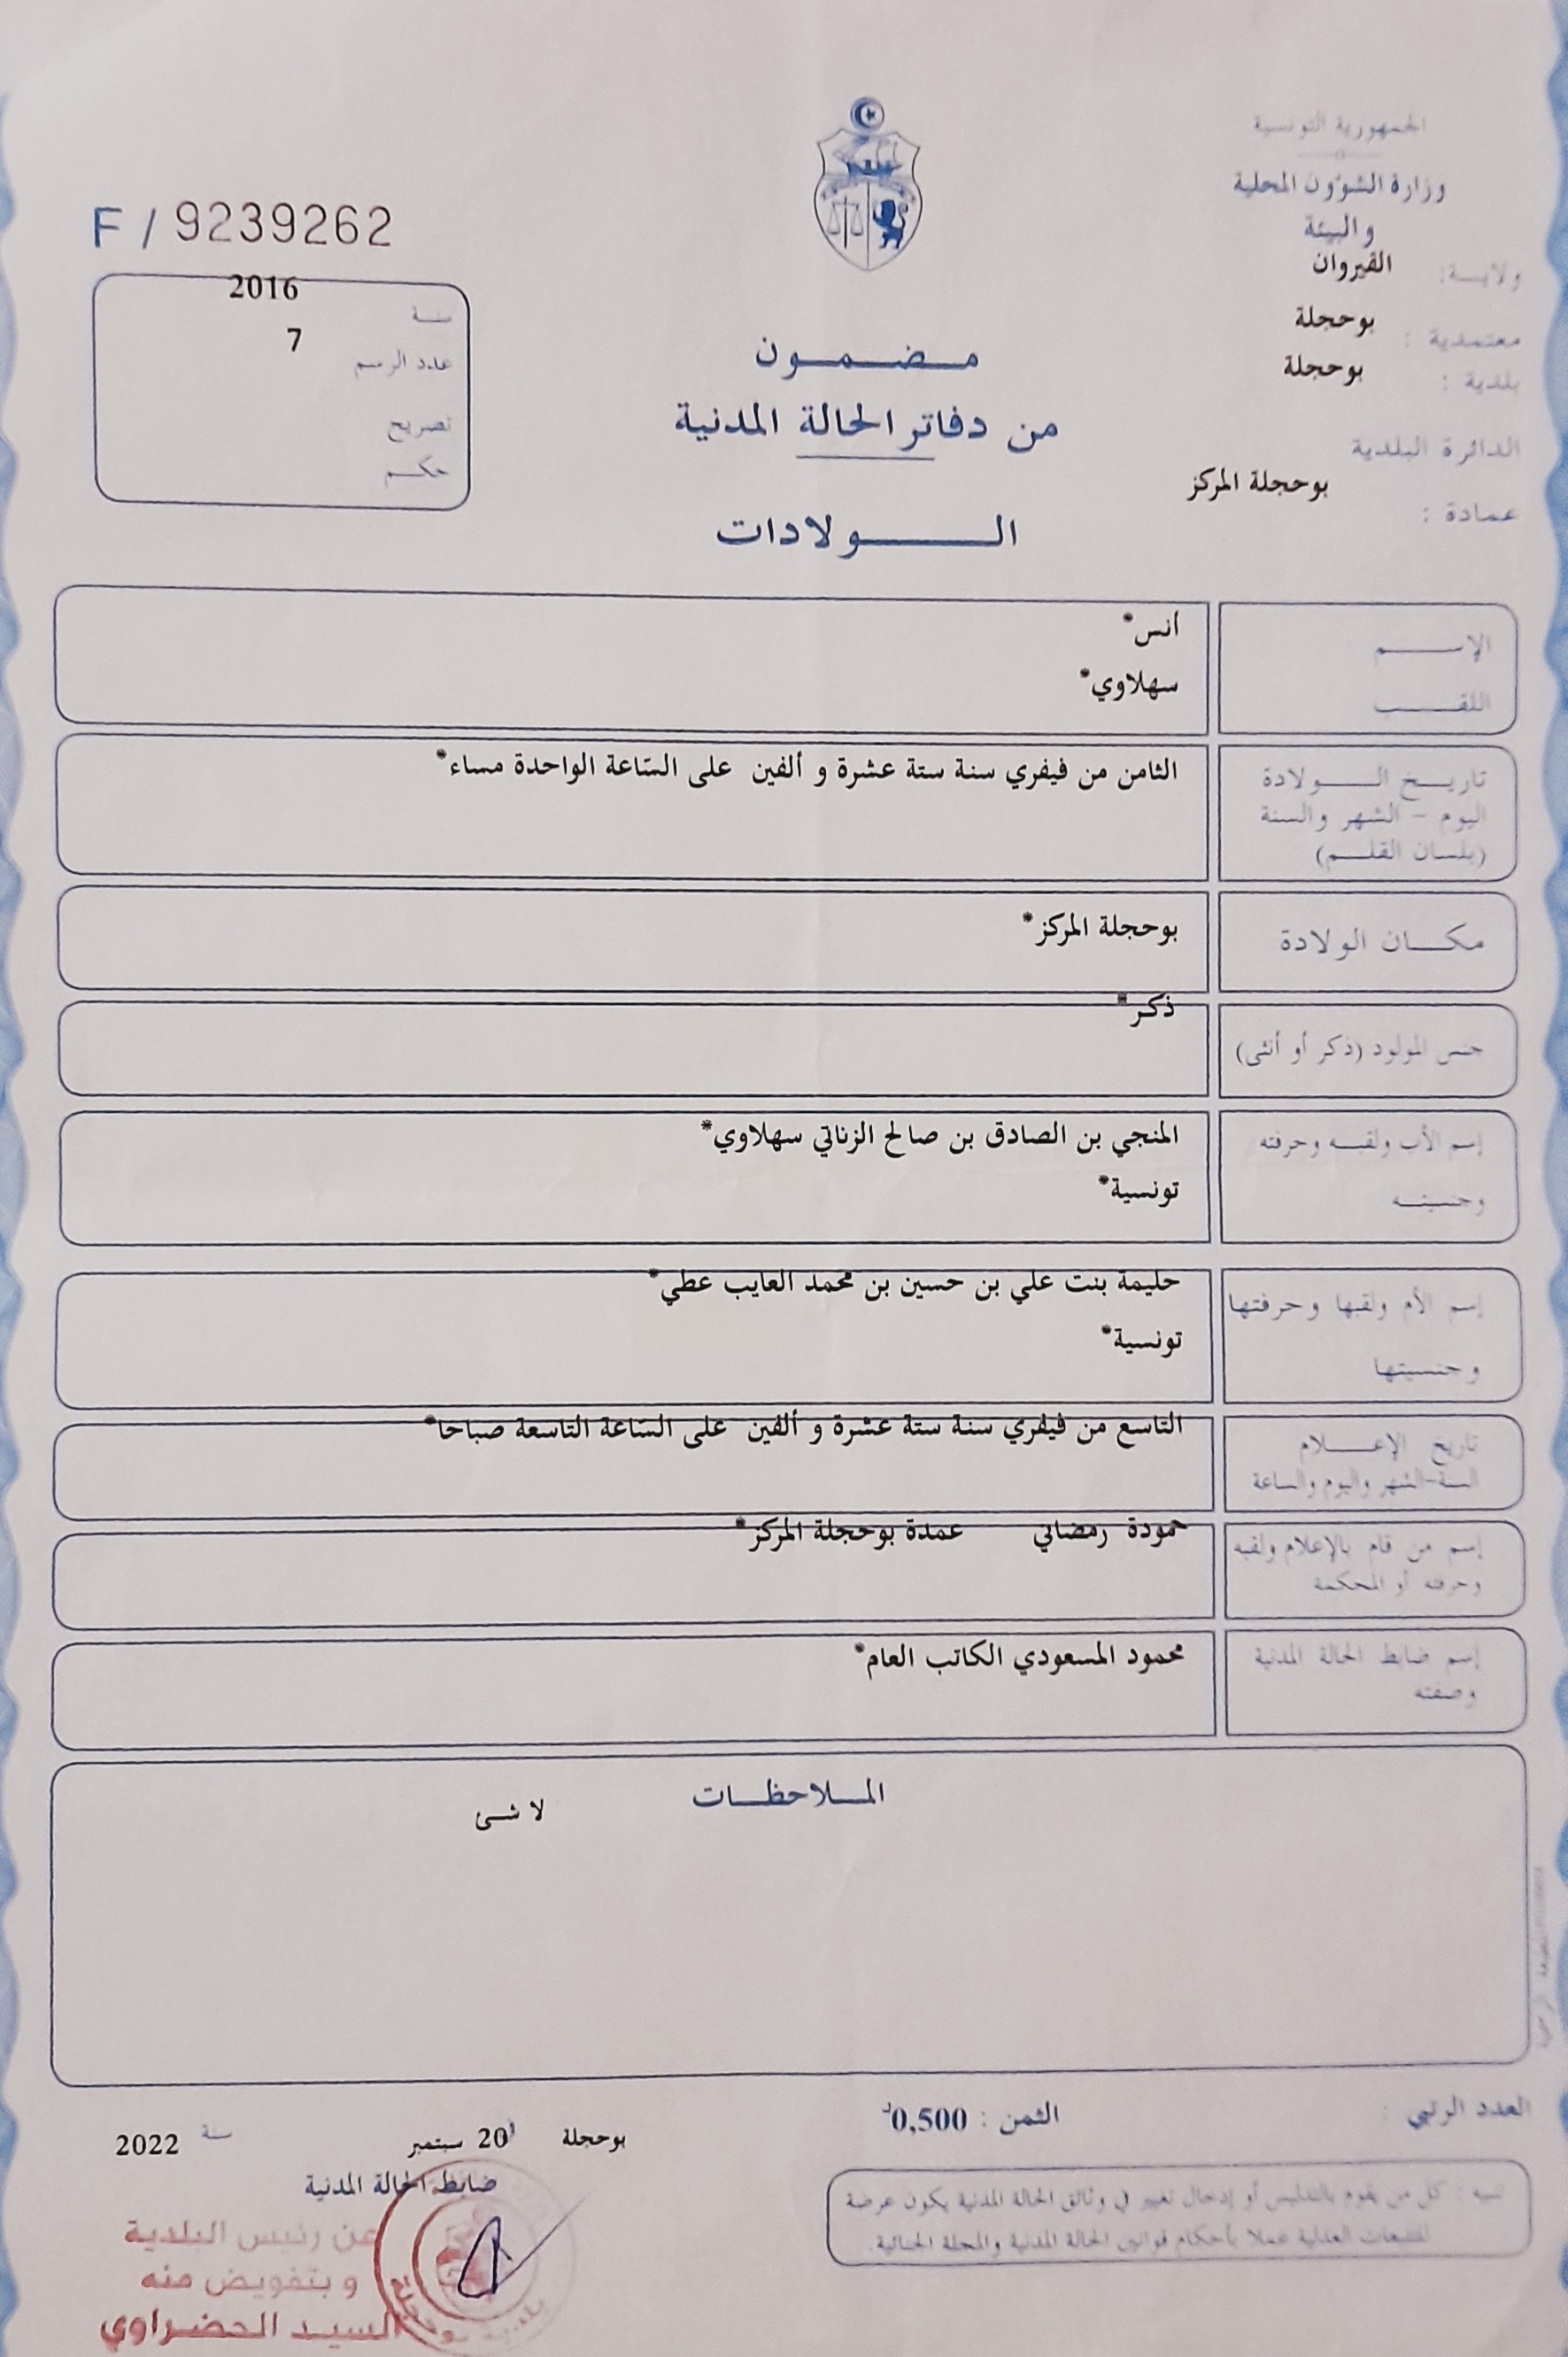 الجمهورية التونسية
وزارة الشؤون المحلية
والبيئة
ولايـــة: القيروان
معتمدية : بوحجلة
بلدية : بوحجلة
الدائرة البلدية
عمادة : بوحجلة المركز
F / 9239262
سنـة 2016
عدد الرسم 7
تصريح
حكـم
مـضـمـون
من دفاتر الحالة المدنية
الـــولادات
الإســـم أنس*
اللقـــب سهلاوي*
تاريـــخ الـــولادة الثامن من فيفري سنة ستة عشرة و ألفين على السّاعة الواحدة مساء*
اليوم - الشهر والسنة
(بلسان القلـــم)
مكـــان الولادة بوحجلة المركز*
جنس المولود (ذكر أو أنثى) ذكر*
إسم الأب ولقبـه وحرفته المنجي بن الصادق بن صالح الزناتي سهلاوي*
وجنسيتـــه تونسية*
إسم الأم ولقبها وحرفتها حليمة بنت علي بن حسين بن محمد العايب عطي*
وجنسيتها تونسية*
تاريخ الإعـــلام التاسع من فيفري سنة ستة عشرة و ألفين على السّاعة التاسعة صباحا*
السنة-الشهر واليوم والساعة
إسم من قام بالإعلام ولقبه حمودة رمضاني عمدة بوحجلة المركز*
وحرفته أو المحكمة
إسم ضابط الحالة المدنية محمود المسعودي الكاتب العام*
وصفته
المـلاحظـات
لا شئ
العدد الرتبي :
الثمن : 0,500د
بوحجلة 20 سبتمبر سنة 2022
ضابط الحالة المدنية
عن رئيس البلدية
و بتفويض منه
السيد الحضراوي
تنبيه : كل من يقوم بالتدليس أو إدخال تغيير في وثائق الحالة المدنية يكون عرضة
للتتبعات العدلية عملا بأحكام قوانين الحالة المدنية والمجلة الجنائية.